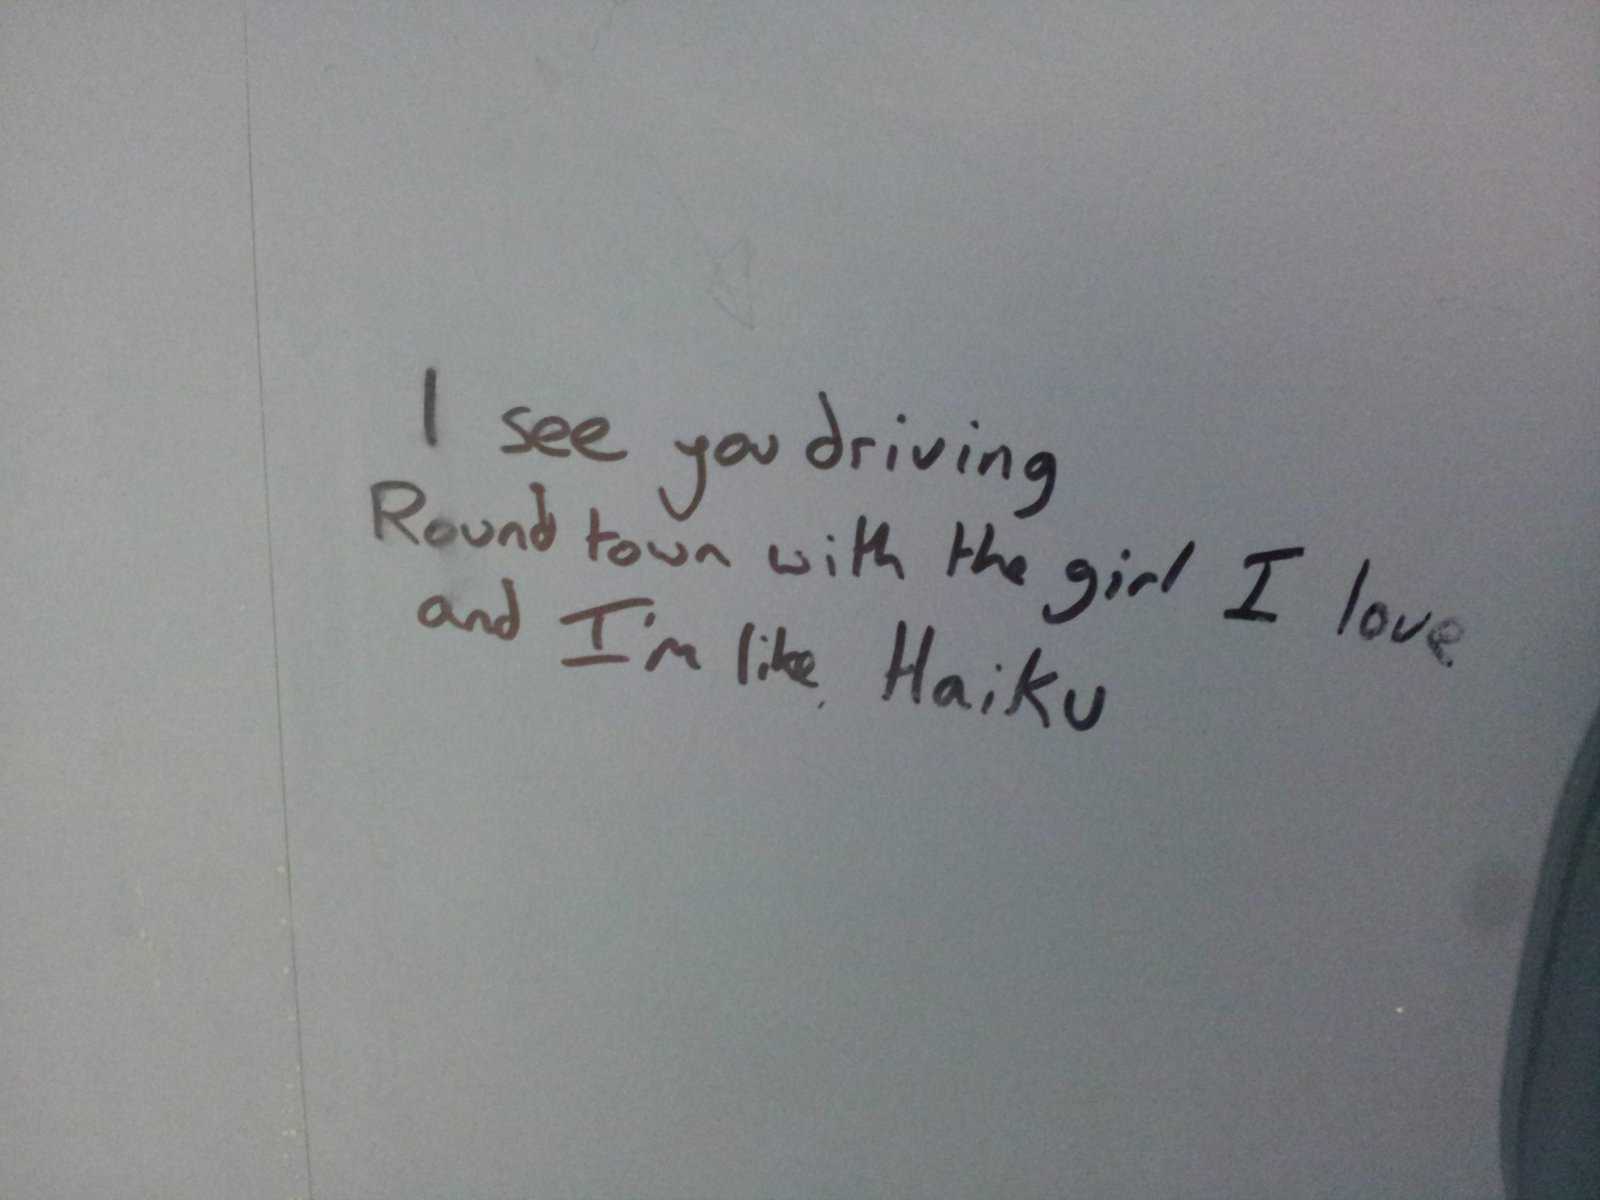 I see you driving
Round town with the girl I love
and I'm like, Haiku